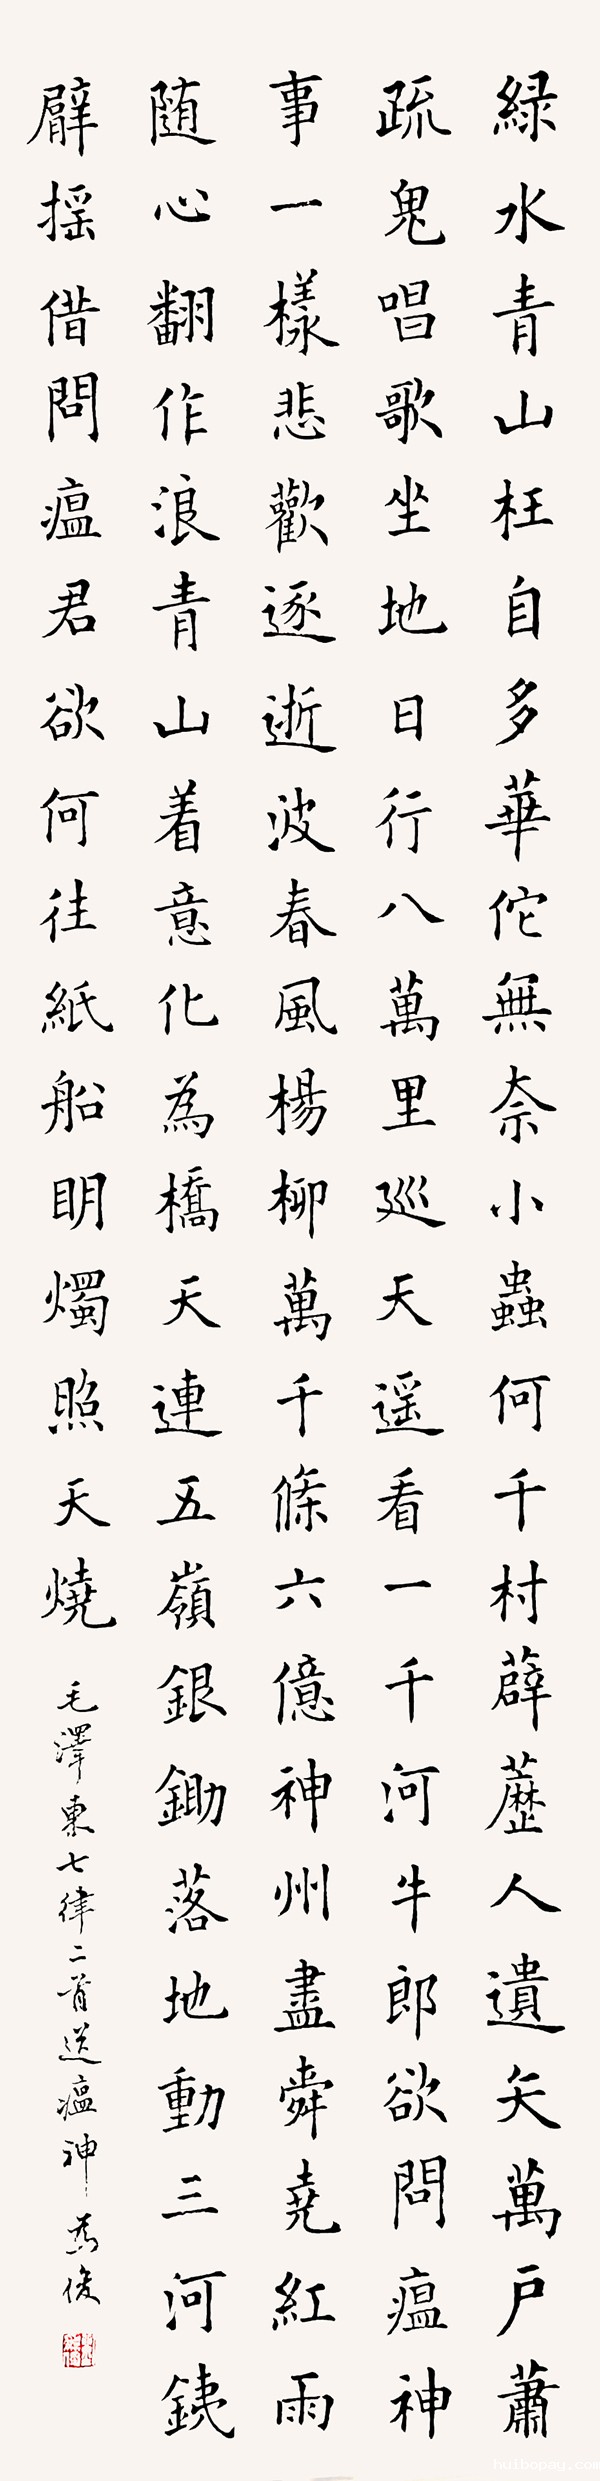 緑水青山枉自多華佗無奈小蟲何千村薜藶人遺矢萬户蕭
疏鬼唱歌坐地日行八萬里巡天遥看一千河牛郎欲問瘟神
事一樣悲歡逐逝波春風楊柳萬千條六億神州盡舜堯紅雨
随心翻作浪青山着意化為橋天連五嶺銀鋤落地動三河鉄
臂揺借問瘟君欲何往紙船明燭照天燒
毛澤東七律二首送瘟神 俊
huibopay.com